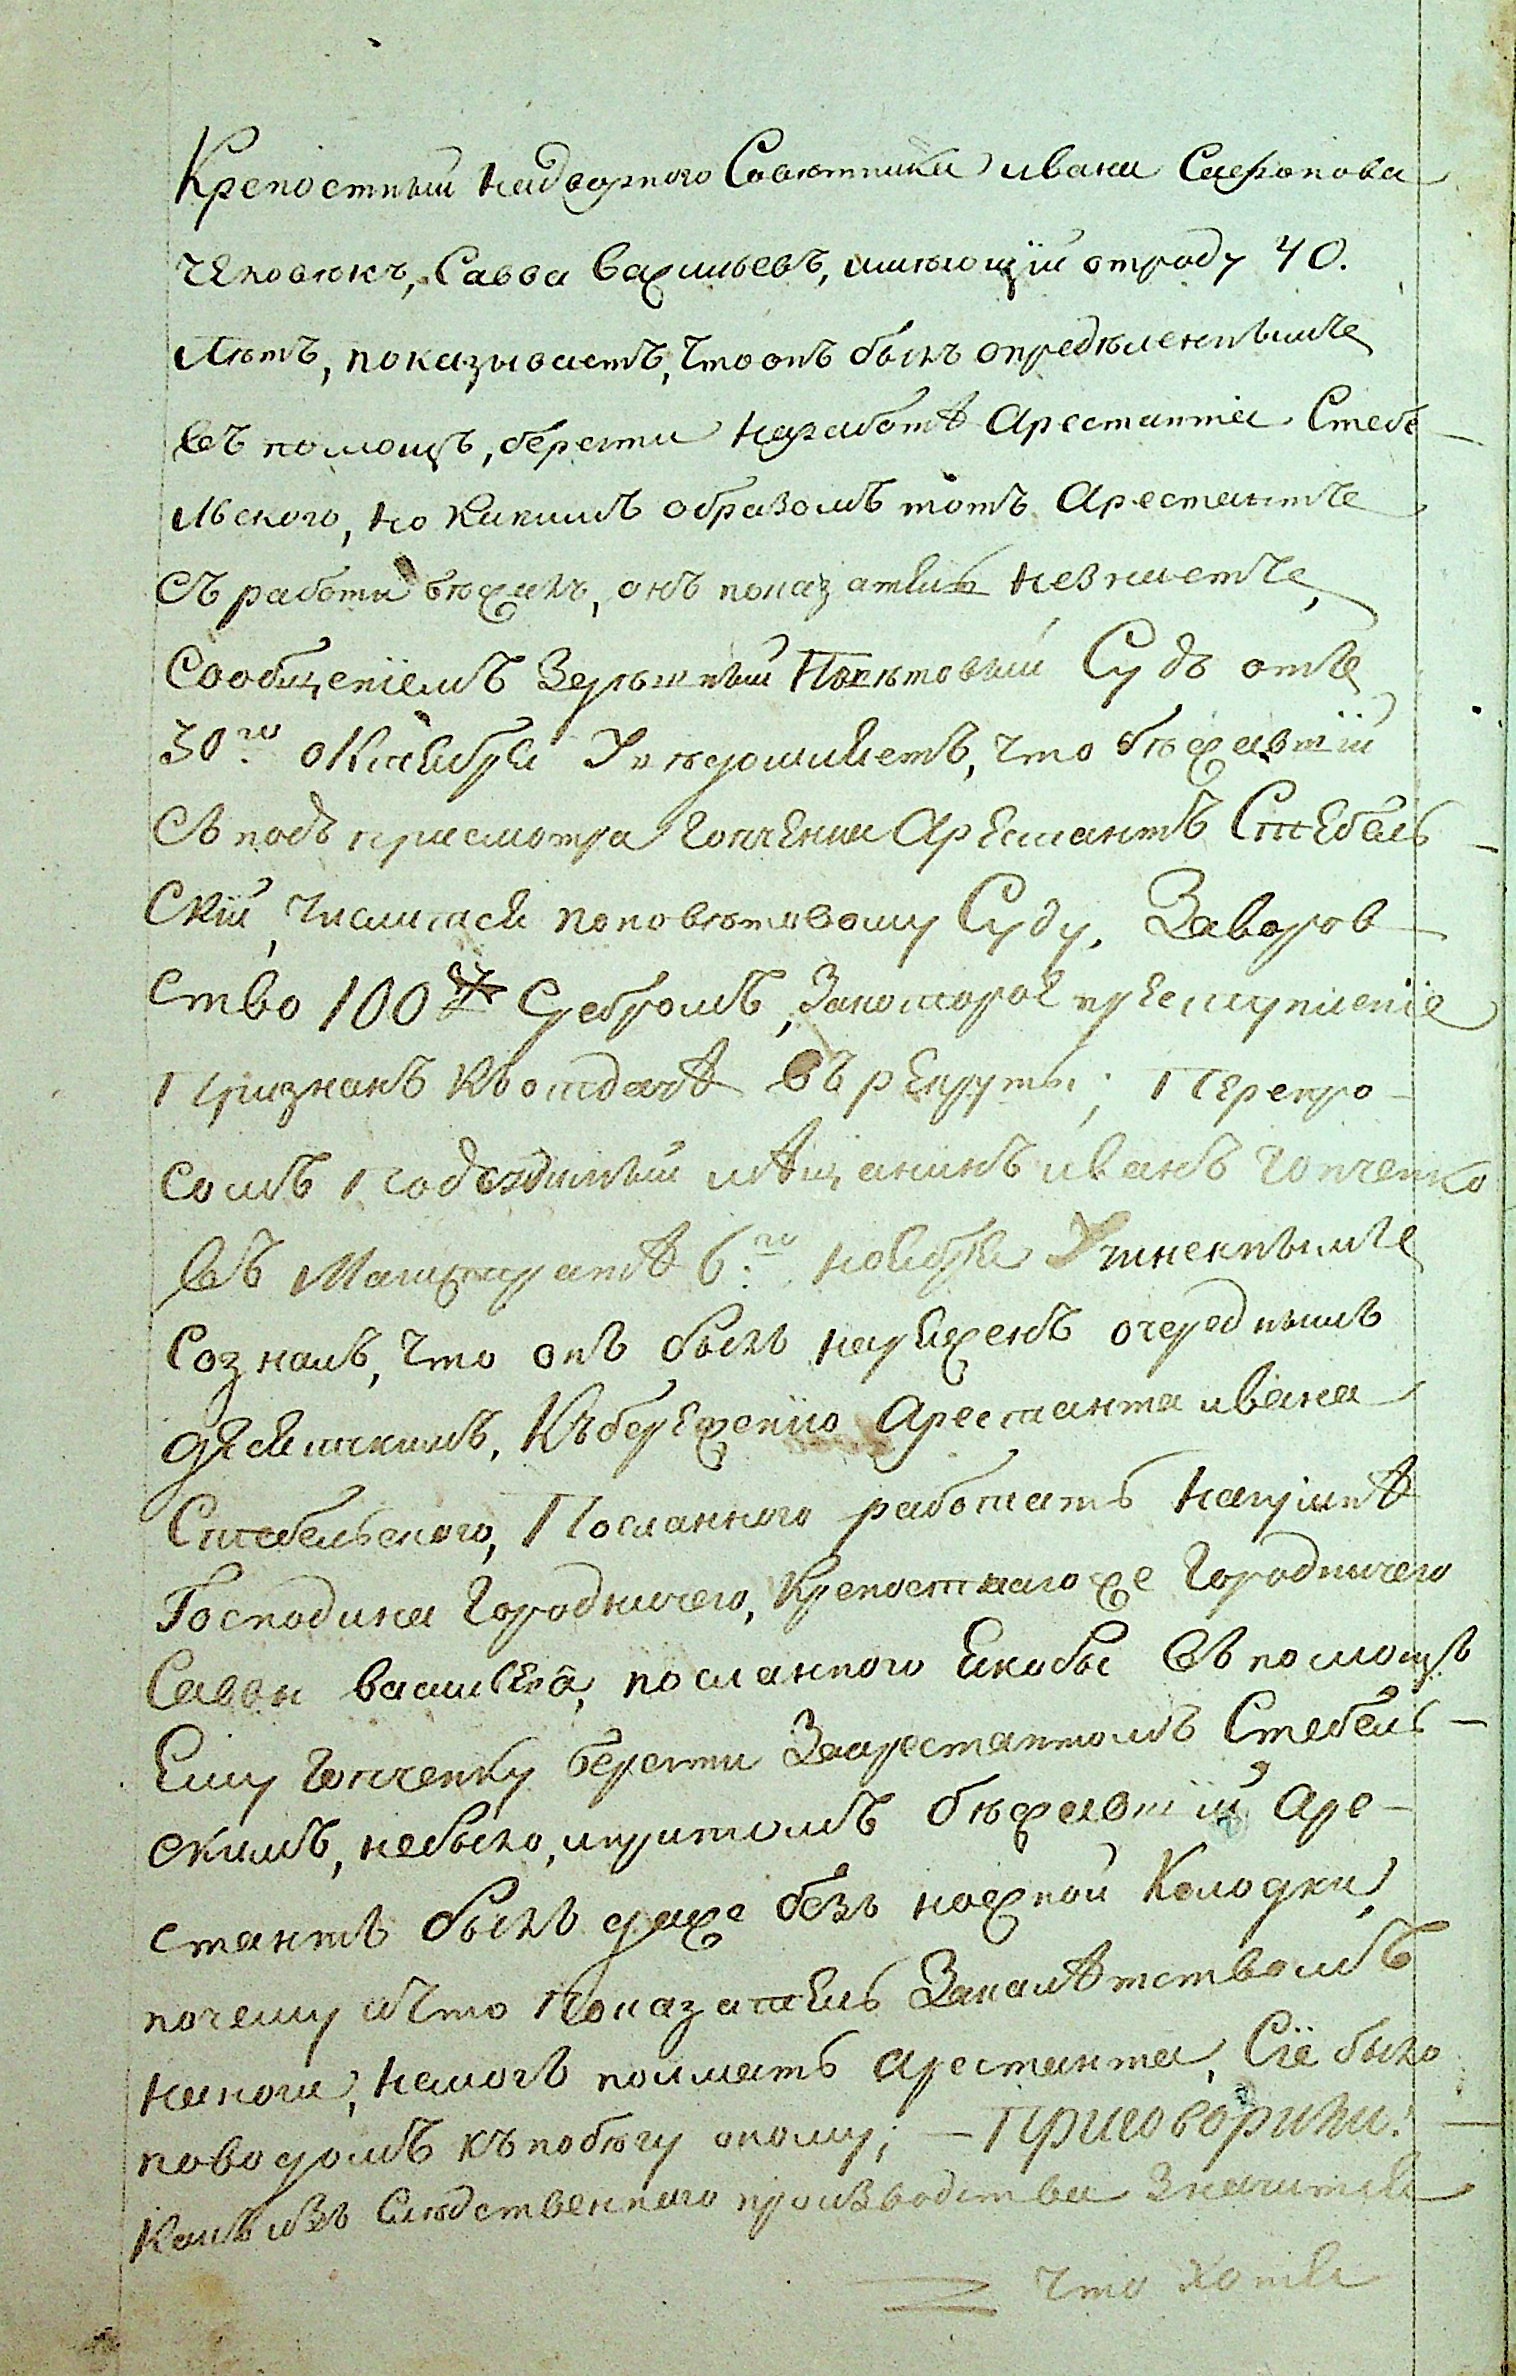 Крепостный надворного Советника ивана Сафонова
человекъ, Савва Васильевъ, имѣющїй отроду 40.
лѣтъ, показываетъ, что онъ былъ опредѣленнымъ
въ помощъ, берегти наработѣ Арестанта Стебе
льского, но какимъ образомъ тотъ Арестантъ
съ работи бѣжалъ, онъ показатъ незнаетъ,
сообщенїемъ Земскїй Повѣтовый Судъ отъ
30го. октября Уведомляетъ, что бѣжавшїй
съ подъ присмотра Гонченки Арестантъ Стебель
скїй, числился поповѣтовому Суду, Заворов
ство 100 Серебромъ, Закоторое преступленїе
признанъ къ отдачѣ въ рекруты; Перепро
сомъ Подсудимый мѣщанинъ иванъ Гонченко
въ Магистратѣ 6го. ноября Учиненнымъ
сознался, что онъ былъ наряженъ очереднымъ
десятскимъ, къ береженїю Арестанта ивана
Стебельского, Посланного работать накухнѣ
Господина Городничего, крепостнаго же Городничего
Саввы васильева, посланного якобы въ помощъ
Ему Гонченку берегти Заарестантомъ Стебель
скимъ, небыло, притомъ бѣжавшїй Аре-
стантъ былъ даже безъ ножной Колодки,
почему и что Показатель Закалѣтствомъ
наноги, немогъ поимать арестанта, Сїе было
поводомъ къ побѣгу оному; — Приговорили:
Какъ изъ Следственного производства Значится
что хотя